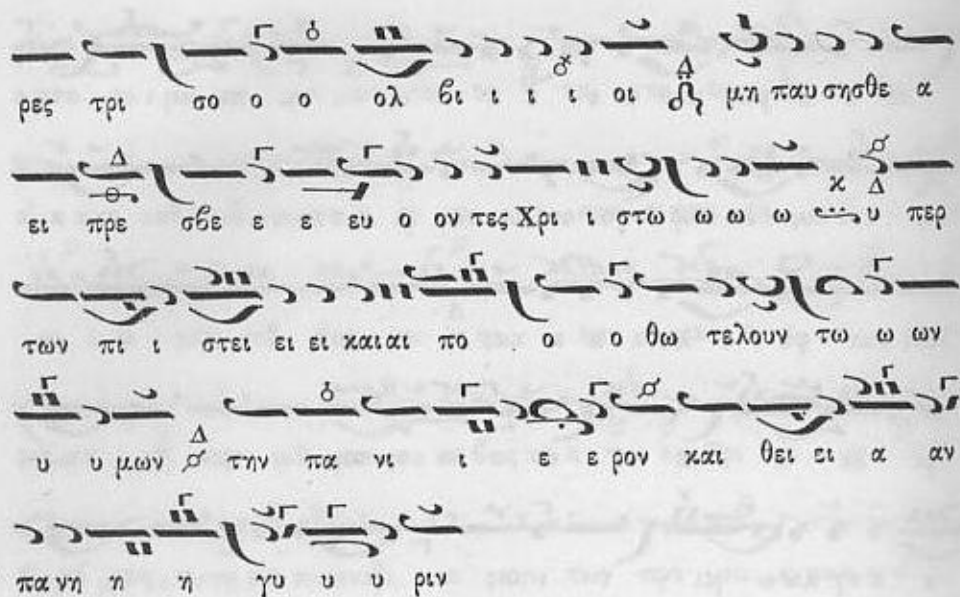 ρες τρι σο ο ο ολ βι ι ι ι οι μη παυ σησθε α
ει πρε σβε ε ε ευ ο ον τες Χρι ι στω ω ω ω υ περ
των πι ι στει ει ει και αι πο ο ο θω τελουν τω ω ων
υ υ μων την πα νι ι ε ε ρον και θει ει α αν
πα νη η η γυ υ υ ριν